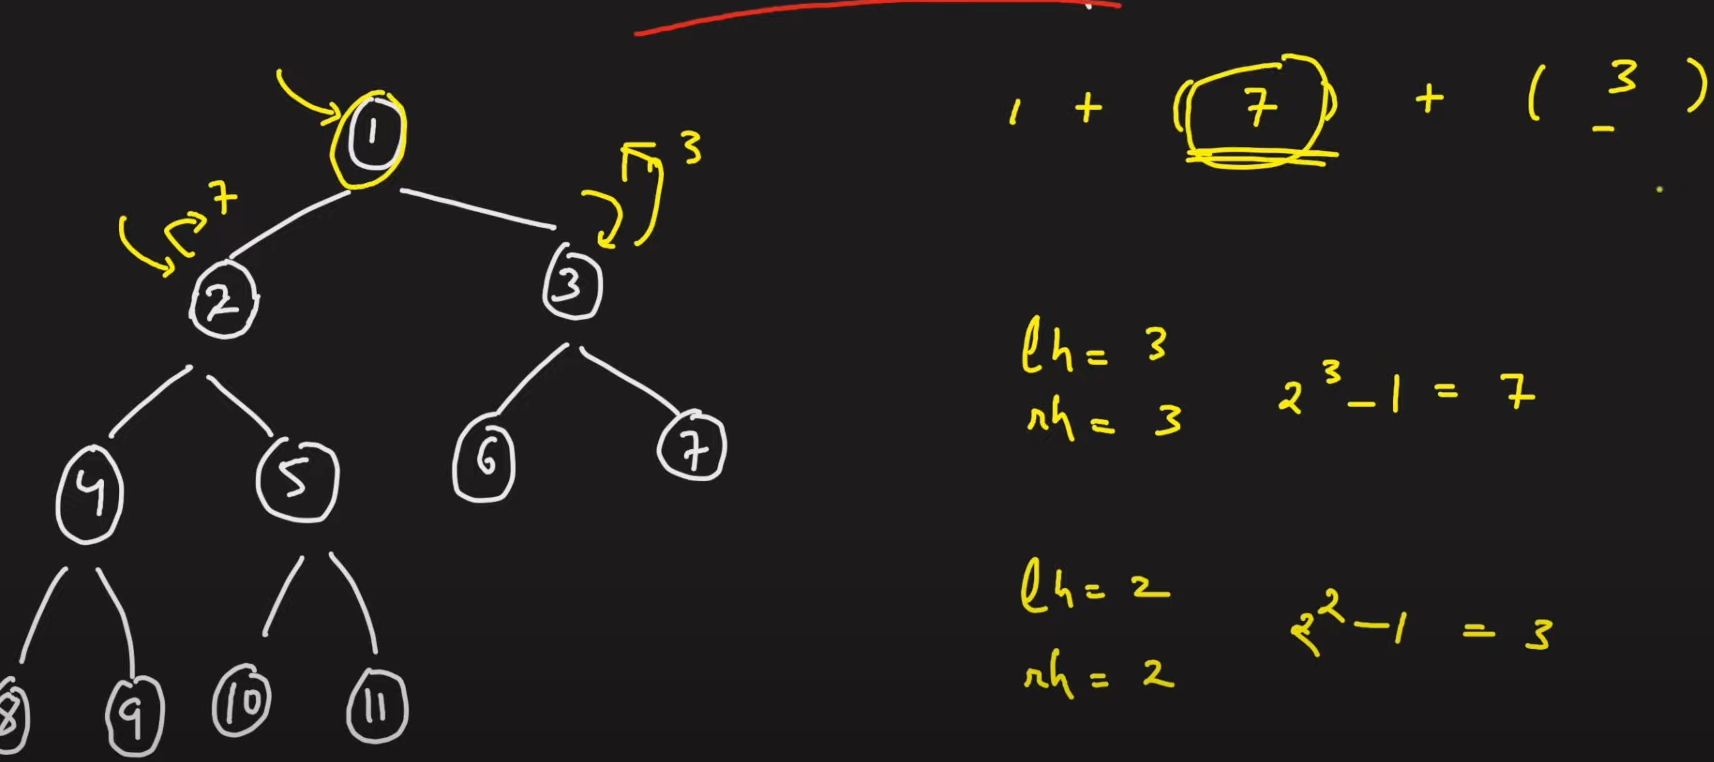 1 + (7) + ( 3 )
1
7
3
2
3
4
5
6
7
8
9
10
11
lh = 3
rh = 3
2³ - 1 = 7
lh = 2
rh = 2
2² - 1 = 3